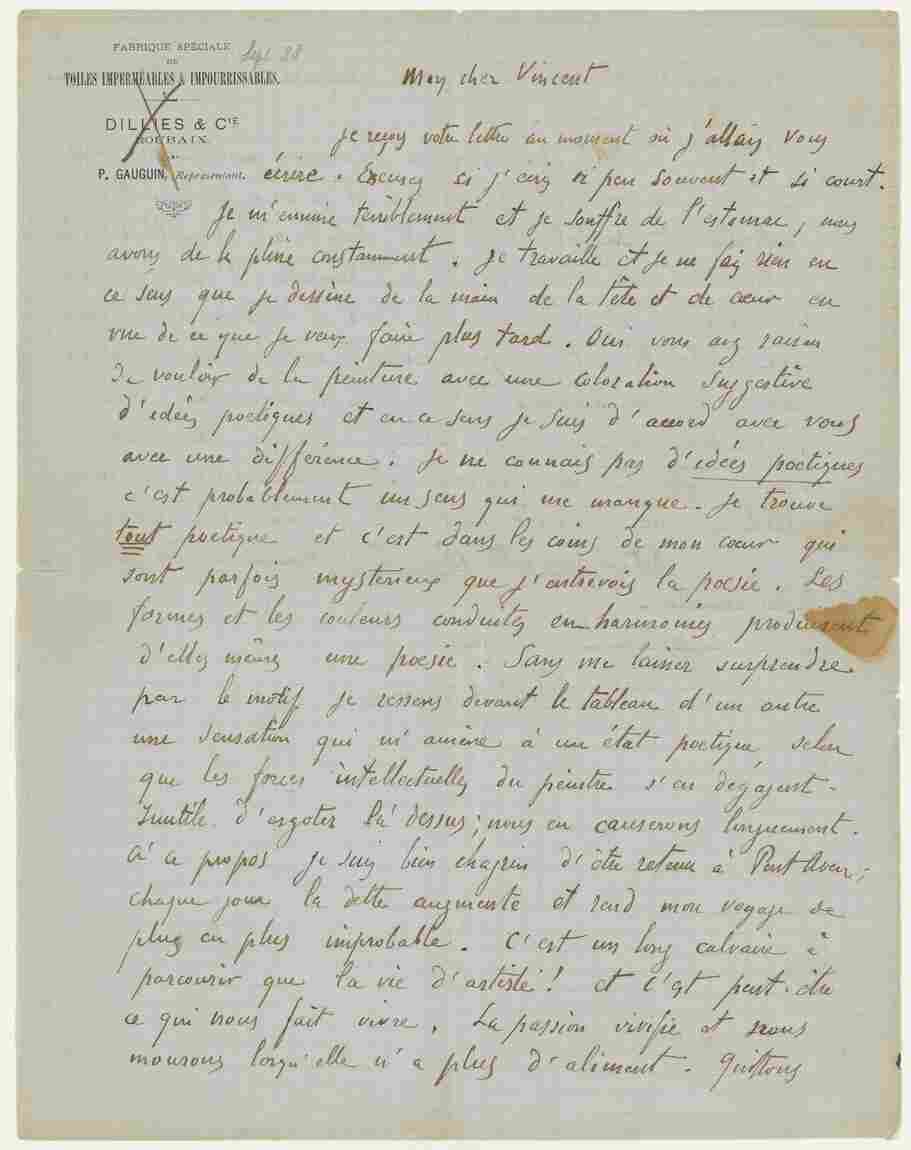 FABRIQUE SPÉCIALE
DE
TOILES IMPERMÉABLES & IMPOURRISSABLES.
DILLIES & CIE
ROUBAIX
P. GAUGUIN, Représentant.
Sept 88
Mon cher Vincent
Je reçois votre lettre au moment où j'allais vous
écrire. Excusez si j'écris si peu souvent et si court.
Je m'ennuie terriblement et je souffre de l'estomac, nous
avons de la pluie constamment. Je travaille et je ne fais rien en
ce sens que je dessine de la main de la tête et de cœur en
vue de ce que je veux faire plus tard. Oui vous avez raison
de vouloir de la peinture avec une coloration suggestive
d'idées poetiques et en ce sens je suis d'accord avec vous
avec une différence. Je ne connais pas d'idées poetiques
c'est probablement un sens qui me manque. Je trouve
tout poetique et c'est dans les coins de mon cœur qui
sont parfois mysterieux que j'entrevois la poesie. Les
formes et les couleurs conduites en harmonies produisent
d'elles mêmes une poesie. Sans me laisser surprendre
par le motif je ressens devant le tableau d'un autre
une sensation qui m'amène à un état poetique selon
que les forces intellectuelles du peintre s'en dégagent.
Inutile d'ergoter là dessus; nous en causerons longuement.
A ce propos je suis bien chagrin d'être retenu à Pont Aven;
chaque jour la dette augmente et rend mon voyage de
plus en plus improbable. C'est un long calvaire à
parcourir que la vie d'artiste! et c'est peut-être
ce qui nous fait vivre. La passion vivifie et nous
mourons lorsqu'elle n'a plus d'aliment. Quittons